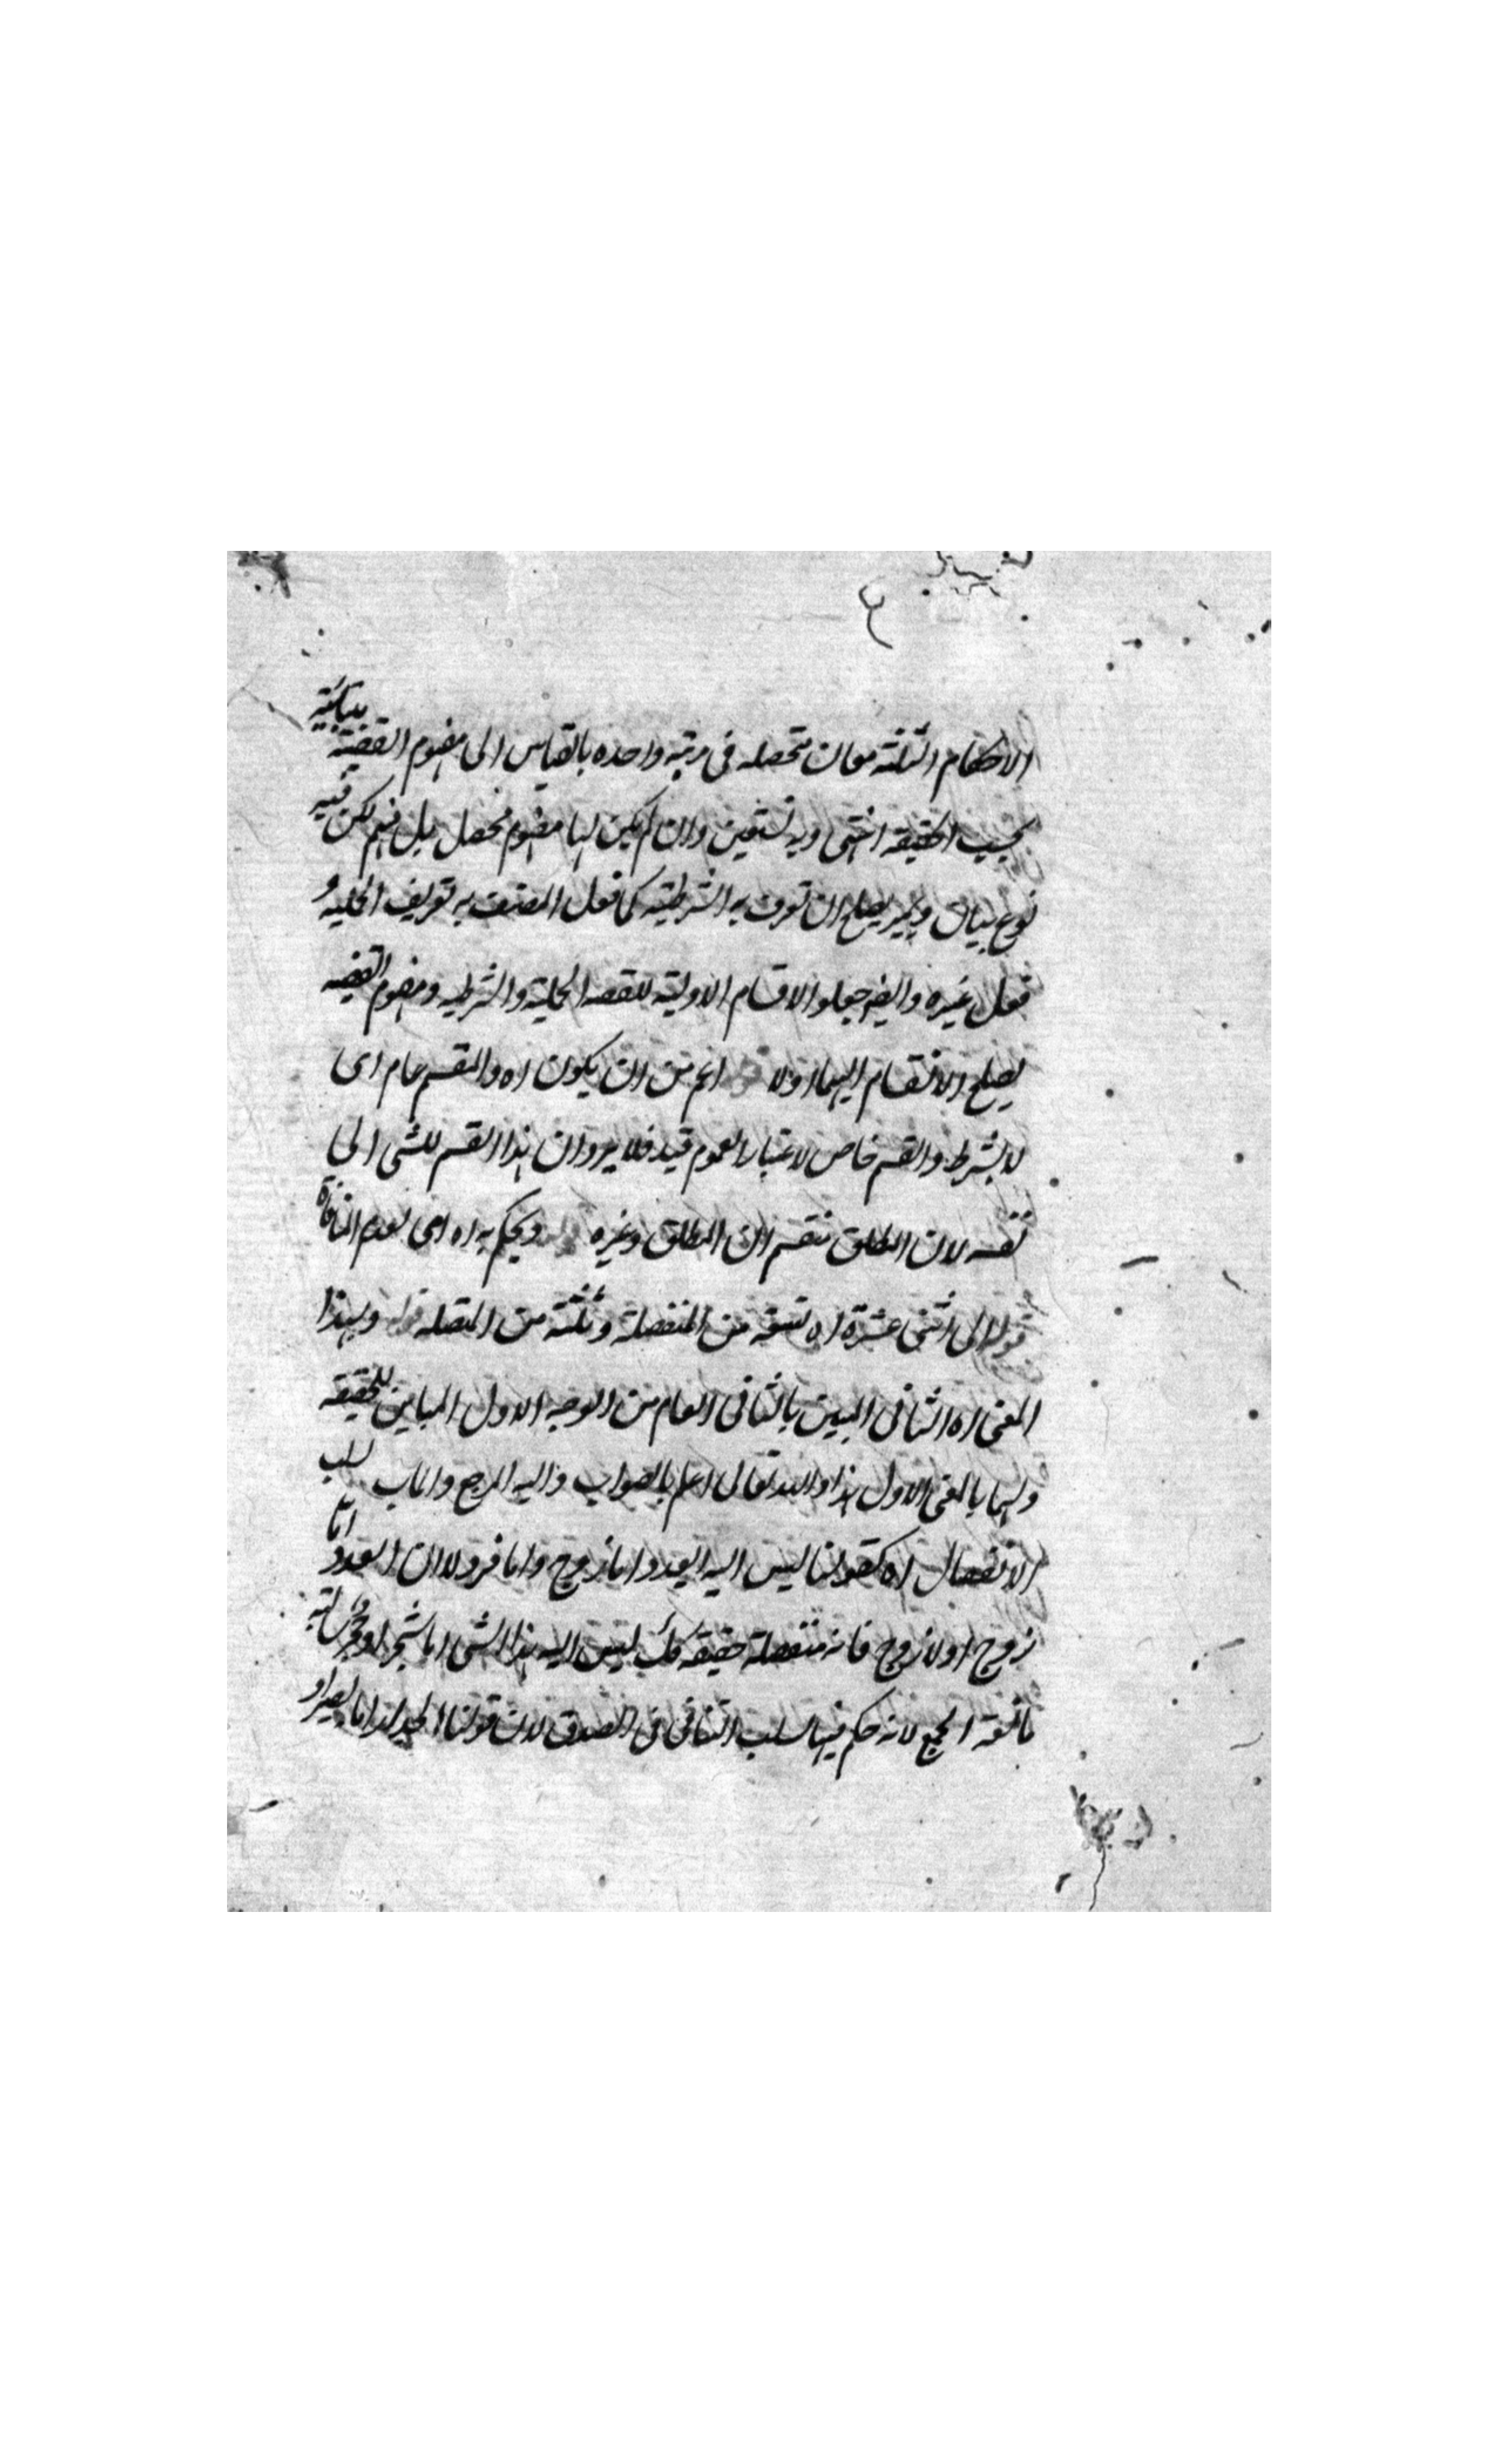 الاحكام الثلثة معان متحصله فى مرتبه واحده بالقياس الى مفهوم القضية متباينة
بحسب الحقيقه انتهى وبه نستعين وان لم يكن لها مفهوم محصل بل فهم لكن فيه
نوع بيان وتميز يصلح ان تعرف به الشرطيته كما فعل المصنف به تعريف الحمليه و
فعل غيره وايضا جعلوا الاقسام الاوليته للقضه الحملية والشرطيه ومفهوم القضيه
يصلح الانقسام اليهما اولا اعم من ان يكون اه والمقسم عام اى
لا بشرط والقسم خاص لاعتبار العموم قيد فلا يرد ان هذا القسم للشى الى
نفسه لان المطلق ينقسم الى المطلق وغيره ويحكم به اه اى لعدم المنافاة
قوله الى اثنى عشرة اه تسعة من المنفصلة وثلثة من المتصله قوله وبهذا
المعنى اه الثانى المبين بالثانى العام من الوجه الاول المباين للحقيقه
ولهما بالمعنى الاول هذا والله تعالى اعلم بالصواب واليه المرجع والماب سلب
الانفصال اه كقولنا ليس البته العدد اما زوج واما فرد لان العدد اما
زوج او لا زوج فانه منفصلة حقيقه ليس البته هذا الشى اما شجر او حجر سالبة
مانعة الجمع لانه حكم فيها سلب التنافى فى الصدق لان قولنا